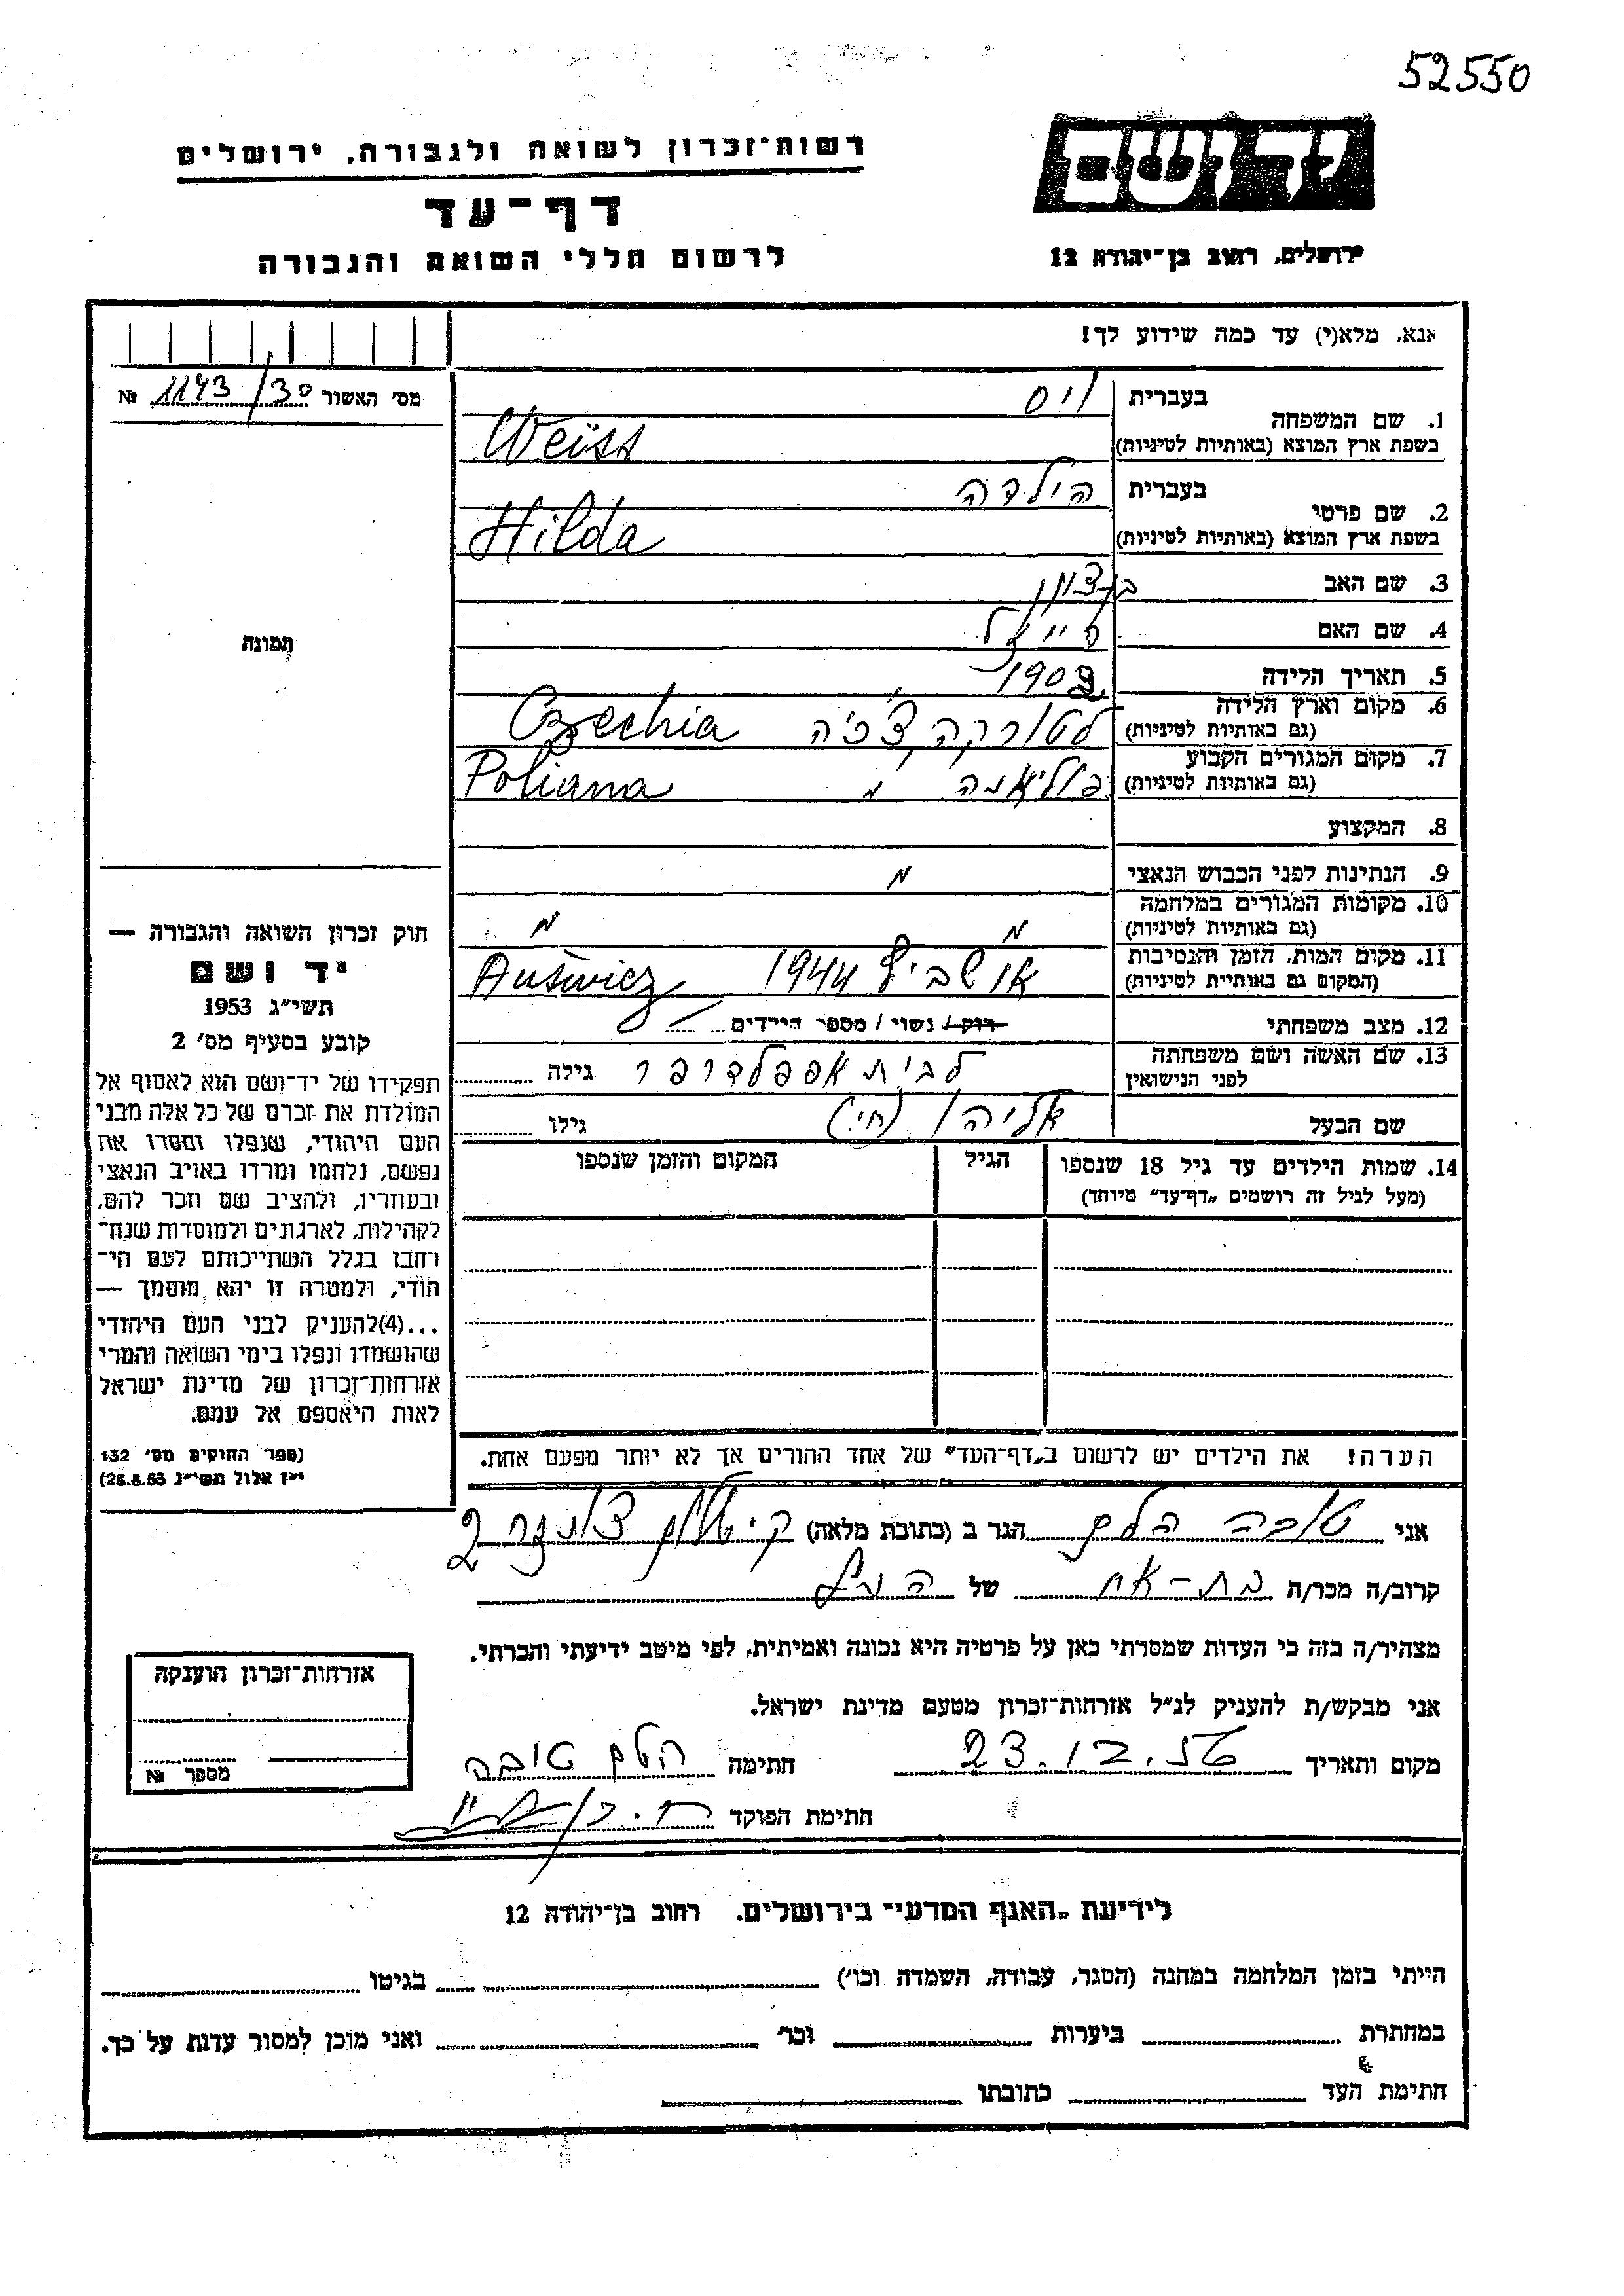 52550
יד ושם
רשות־זכרון לשואה ולגבורה, ירושלים
דף־עד
ירושלים, רחוב בן־יהודה 12
לרשום חללי השואה והגבורה
אנא, מלא(י) עד כמה שידוע לך!
מס׳ האשור 1143/30 №
תמונה
בעברית ויס
1. שם המשפחה
בשפת ארץ המוצא (באותיות לטיניות) Weiss
בעברית הילדה
2. שם פרטי
בשפת ארץ המוצא (באותיות לטיניות) Hilda
3. שם האב בן ציון
4. שם האם
5. תאריך הלידה
6. מקום וארץ הלידה
(גם באותיות לטיניות) לטורקה, צ'כיה Czechia
7. מקום המגורים הקבוע
(גם באותיות לטיניות) פוליאנה Poliana
8. המקצוע
9. הנתינות לפני הכבוש הנאצי
10. מקומות המגורים במלחמה
(גם באותיות לטיניות)
11. מקום המות, הזמן והנסיבות
(המקום גם באותיות לטיניות) אושביץ 1944 Auswicz
12. מצב משפחתי רוק/ נשוי/ מספר הילדים
13. שם האשה ושם משפחתה
לפני הנישואין לבית אפלדרפר גילה
שם הבעל אליהו (חי) גילו
14. שמות הילדים עד גיל 18 שנספו
(מעל לגיל זה רושמים „דף־עד" מיוחד)
הגיל
המקום והזמן שנספו
הערה! את הילדים יש לרשום ב„דף־העד" של אחד ההורים אך לא יותר מפעם אחת.
חוק זכרון השואה והגבורה —
יד ושם
תשי״ג 1953
קובע בסעיף מס׳ 2
תפקידו של יד־ושם הוא לאסוף אל
המולדת את זכרם של כל אלה מבני
העם היהודי, שנפלו ומסרו את
נפשם, נלחמו ומרדו באויב הנאצי
ובעוזריו, ולהציב שם וזכר להם,
לקהילות, לארגונים ולמוסדות שנח־
רחבו בגלל השתייכותם לעם הי־
הודי, ולמטרה זו יהא מוסמך —
...(4)להעניק לבני העם היהודי
שהושמדו ונפלו בימי השואה והמרי
אזרחות־זכרון של מדינת ישראל
לאות היאספם אל עמם.
(ספר החוקים מס׳ 132
י״ז אלול תשי״ג 28.8.53)
אני טובה הלם הגר ב (כתובת מלאה) 2
קרוב/ה מכר/ה בת-אח של הנ״ל
מצהיר/ה בזה כי העדות שמסרתי כאן על פרטיה היא נכונה ואמיתית, לפי מיטב ידיעתי והכרתי.
אני מבקש/ת להעניק לנ״ל אזרחות־זכרון מטעם מדינת ישראל.
מקום ותאריך 23.12.56 חתימה הלם טובה
חתימת הפוקד
אזרחות־זכרון הוענקה
מספר №
לידיעת „האגף המדעי" בירושלים. רחוב בן־יהודה 12
הייתי בזמן המלחמה במחנה (הסגר, עבודה, השמדה וכו׳) בגיטו
במחתרת ביערות וכו׳ ואני מוכן למסור עדות על כך.
חתימת העד כתובתו